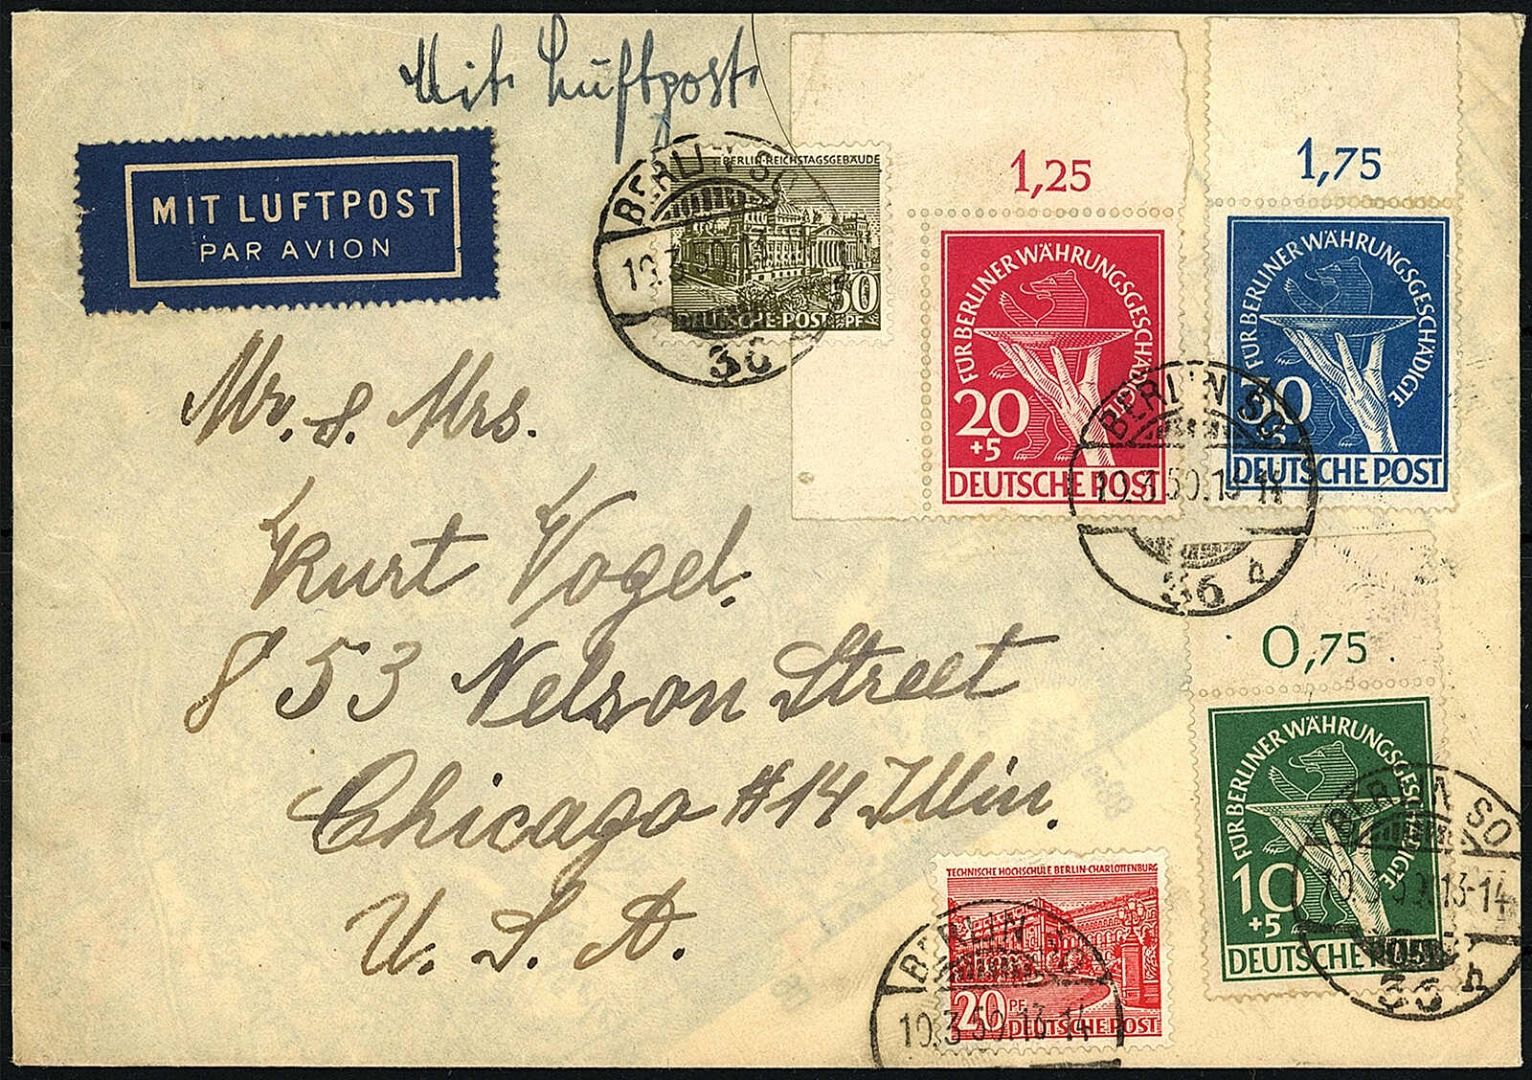 Mit Luftpost
MIT LUFTPOST
PAR AVION
BERLIN-REICHSTAGSGEBÄUDE
DEUTSCHE-POST PF
BERLIN SO
10.3.50
36
1,25
FÜR BERLINER WÄHRUNGSGESCHÄDIGTE
20
+5
DEUTSCHE POST
1,75
FÜR BERLINER WÄHRUNGSGESCHÄDIGTE
30
DEUTSCHE POST
BERLIN SO
10.3.50.13-14
36 h
Mr. &. Mrs.
Kurt Vogel.
853 Nelson Street
Chicago #14 Illin.
U. S. A.
0,75
FÜR BERLINER WÄHRUNGSGESCHÄDIGTE
10
+5
DEUTSCHE POST
BERLIN SO
10.3.50.13-14
36 h
TECHNISCHE HOCHSCHULE BERLIN-CHARLOTTENBURG
20 PF
DEUTSCHE POST
BERLIN SO
10.3.50.13-14